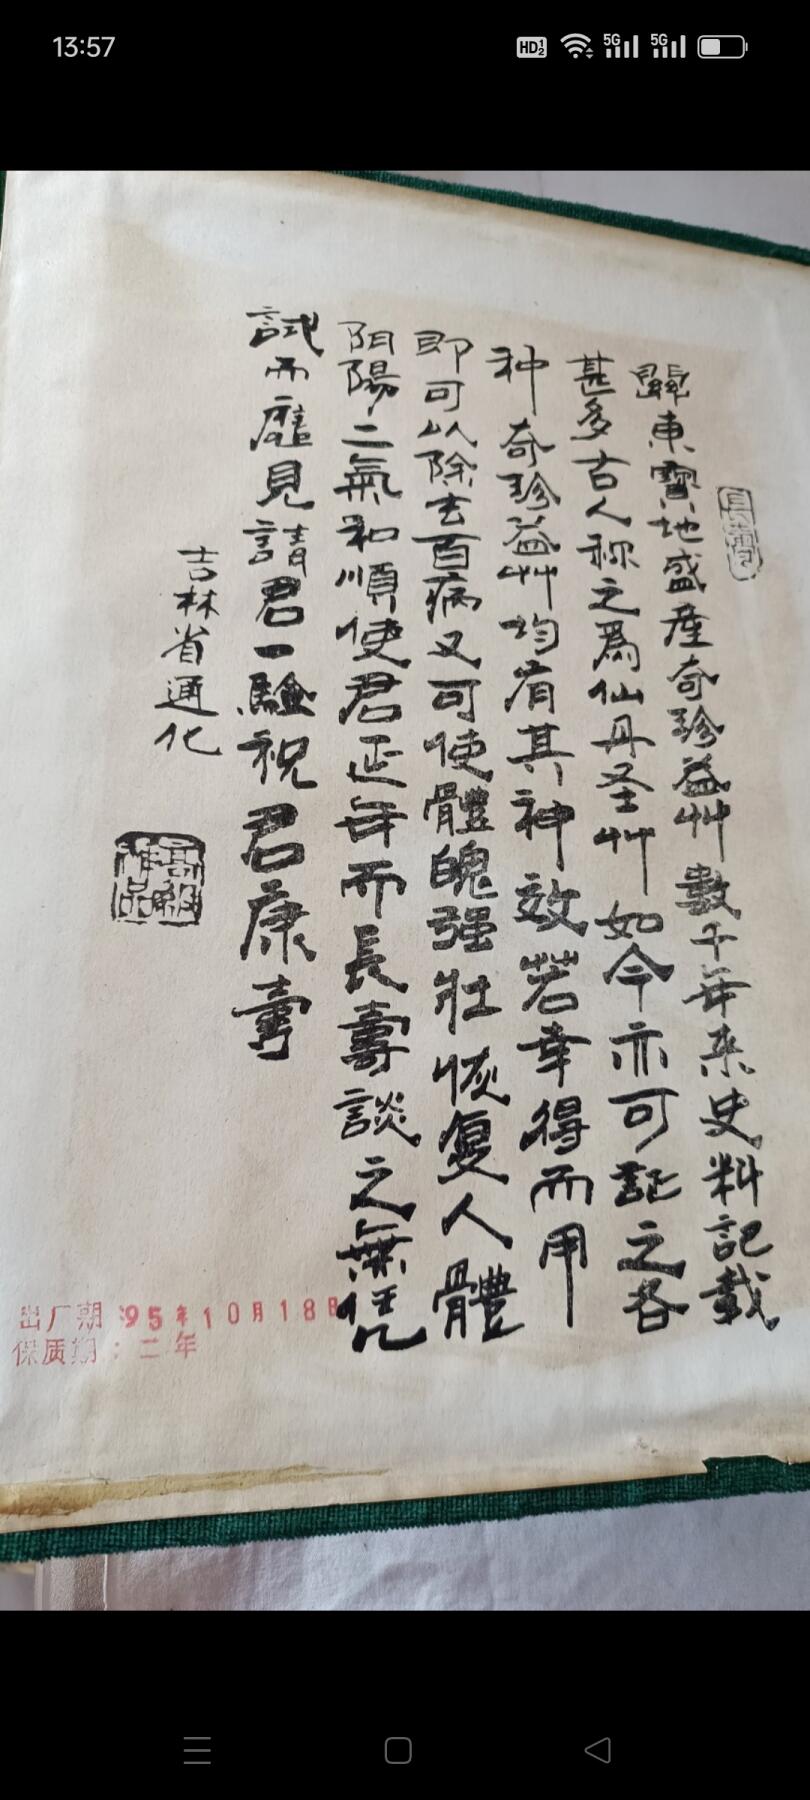 13:57
HD 1 2
5G
5G
關東寶地盛產奇珍益艸數千年來史料記載
甚多古人称之爲仙丹圣艸如今亦可証之各
种奇珍益艸均有其神效若幸得而用
即可以除去百病又可使體魄强壯恢复人體
阴陽二氣和順使君延年而長壽談之無凭
試而應見請君一驗祝君康壽
吉林省通化
出厂期:95年10月18日
保质期:二年